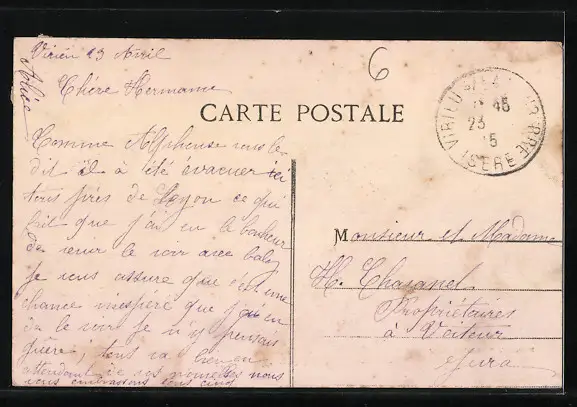 Virieu 23 Avril
Chère Hermance
CARTE POSTALE
6
Comme Alphonse vous le
dit il a été évacuer ici
tous près de Lyon ce qui
fait que j'ai eu le bonheur
de venir le voir avec baby
je vous assure que c'est une
chance inespéré que j'ai eu
de le voir je n'y pensais
guère; tous va bien en
attendant de ses nouvelles nous
vous embrassons tous cinq
Monsieur et Madame
H. Chasanel
Propriétaires
à Voiteur
Jura
VIRIEU
45
23
15
ISERE